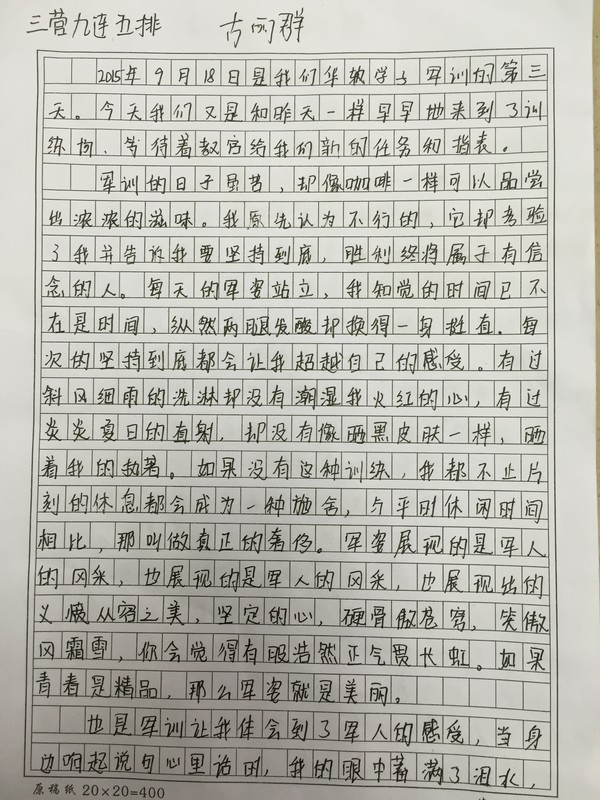 三营九连五排 古丽群
2015年9月18日是我们华软学子军训的第三
天。今天我们又是和昨天一样早早地来到了训
练场、等待着教官给我们新的任务和指表。
军训的日子虽苦,却像咖啡一样可以品尝
出浓浓的滋味。我原先认为不行的,它却考验
了我并告诉我要坚持到底,胜利终将属于有信
念的人。每天的军姿站立,我知觉的时间已不
在是时间,纵然两腿发酸却换得一身挺直。每
次的坚持到底都会让我超越自己的感受。有过
斜风细雨的洗淋却没有潮湿我火红的心,有过
炎炎夏日的直射,却没有像晒黑皮肤一样,晒
着我的执著。如果没有这种训练,我都不止片
刻的休息都会成为一种施舍,与平时休闲时间
相比,那叫做真正的奢侈。军姿展现的是军人
的风采,也展现的是军人的风采,也展现出的
义慨从容之美,坚定的心,硬骨傲苍穹,笑傲
风霜雪,你会觉得有股浩然正气贯长虹。如果
青春是精品,那么军姿就是美丽。
也是军训让我体会到了军人的感受,当身
边响起说句心里话时,我的眼中蓄满了泪水,
原稿纸 20×20=400